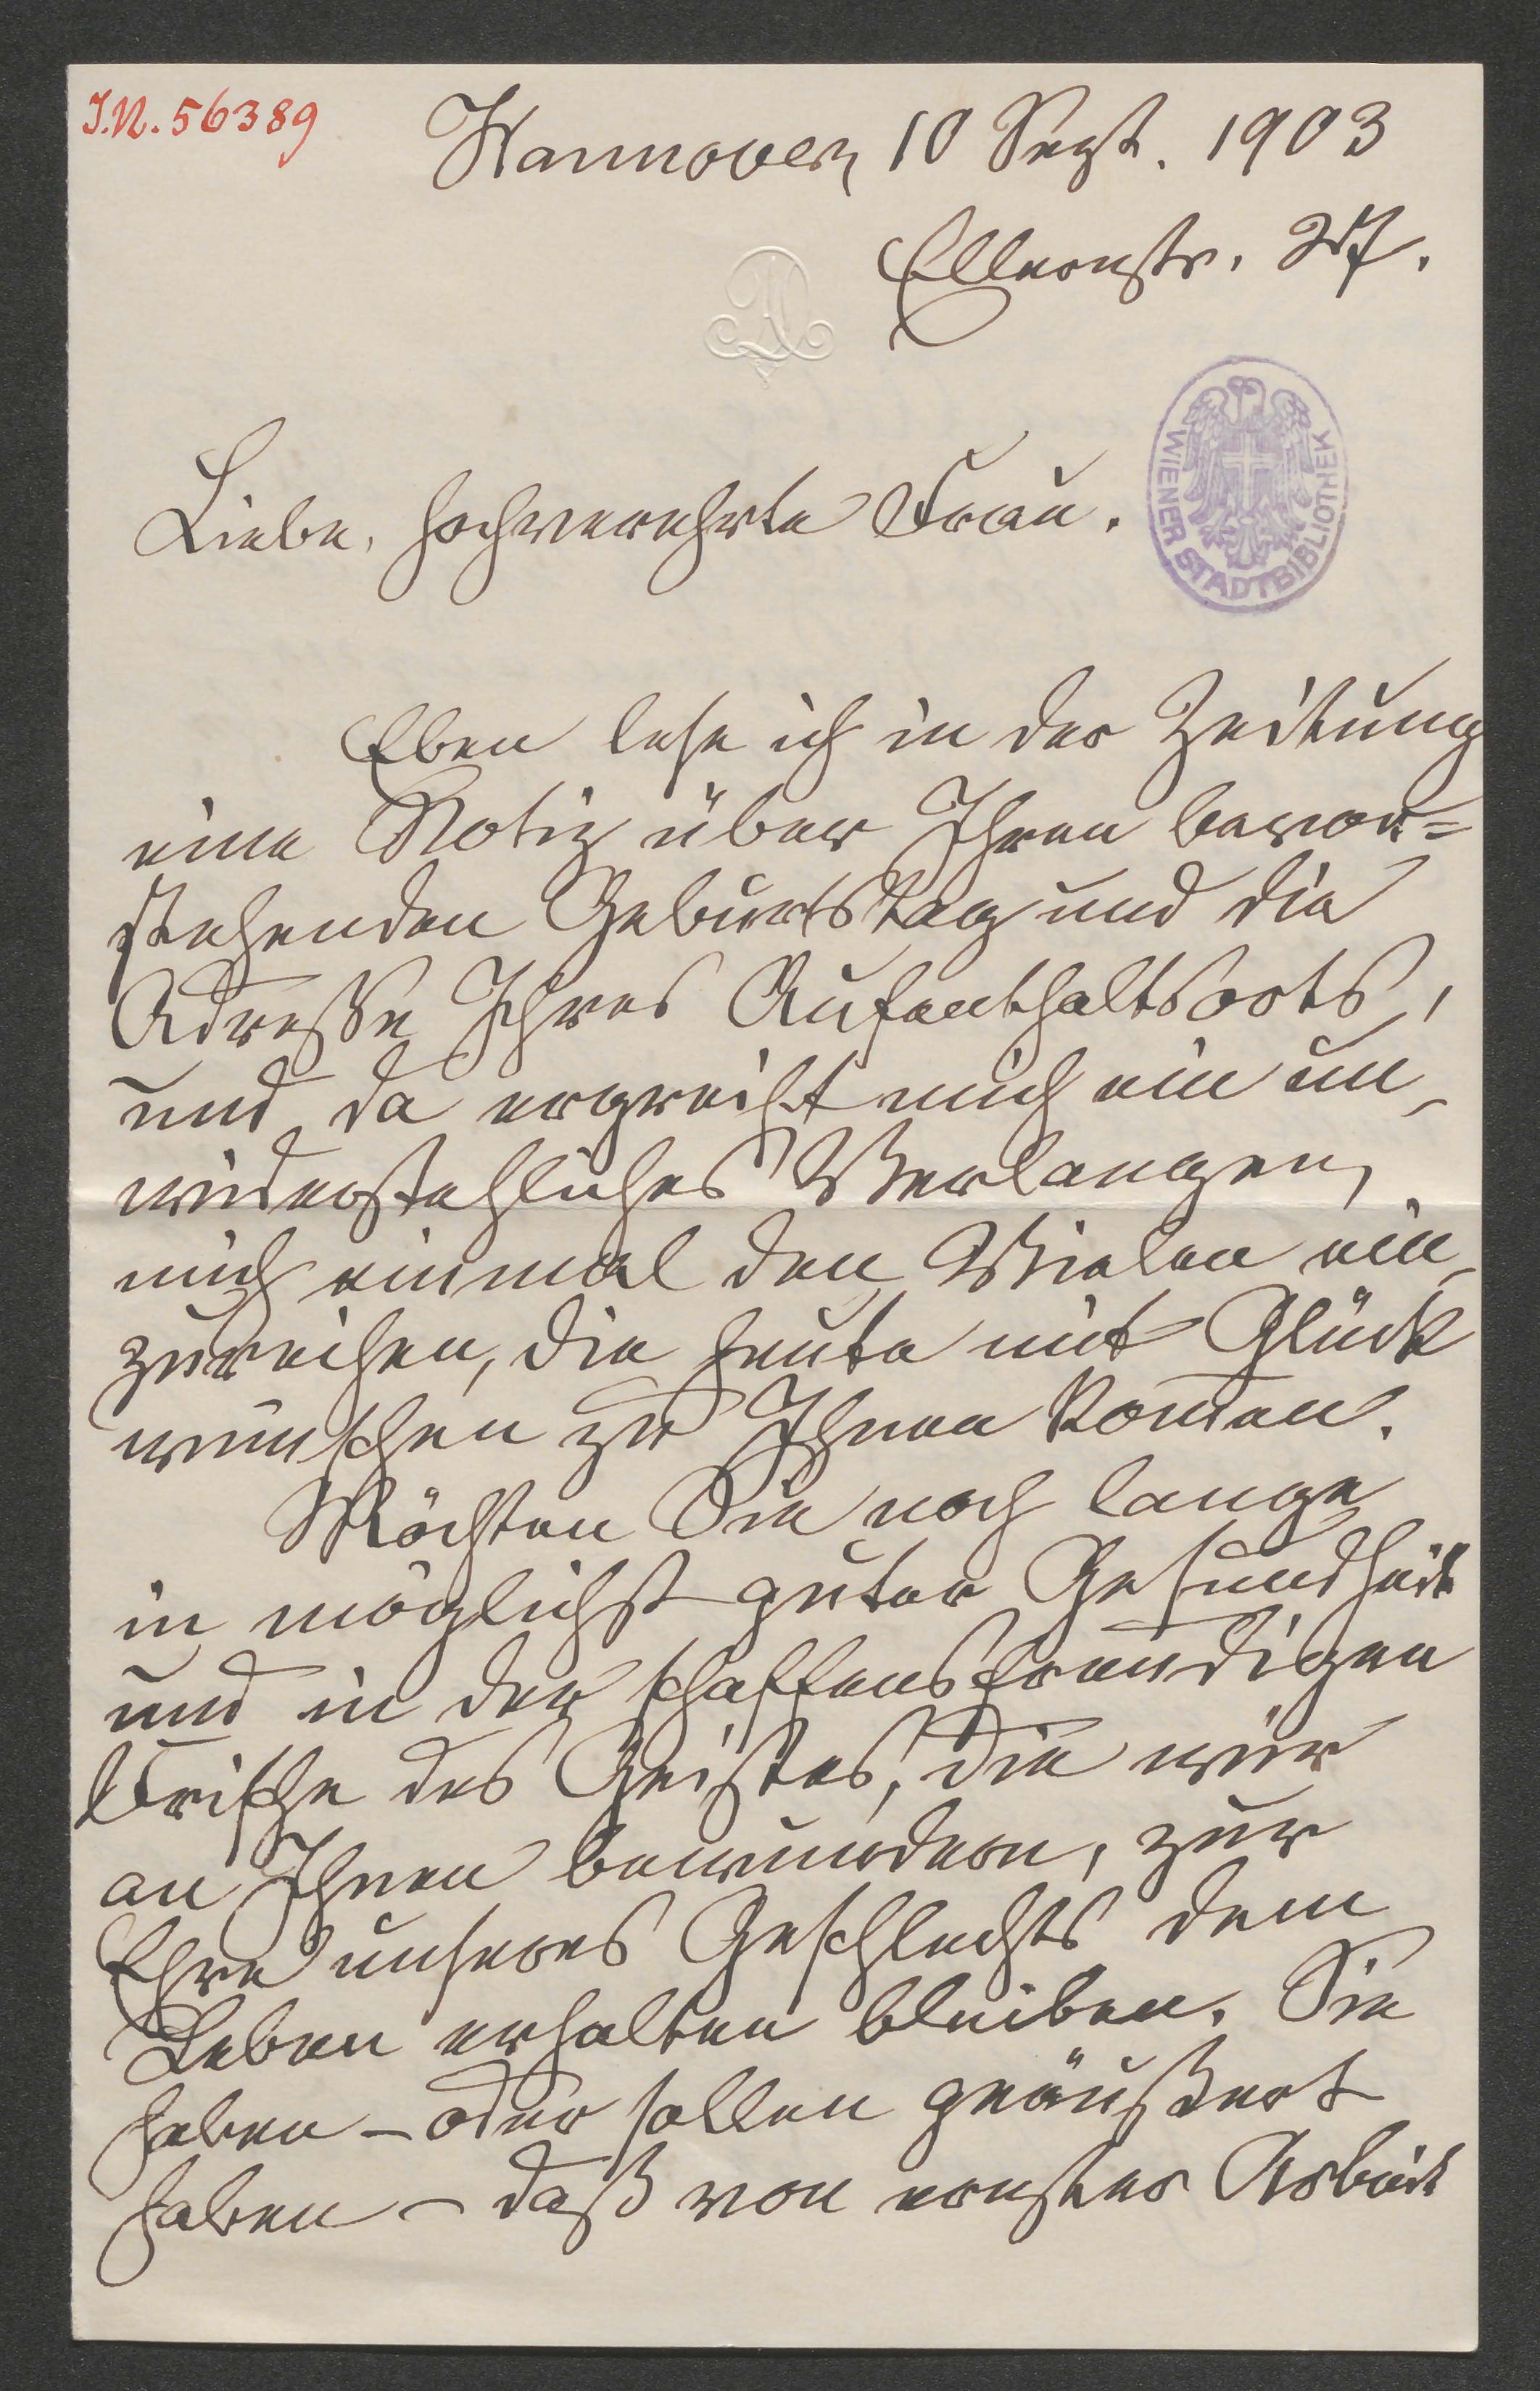 I.N. 56389
Hannover, 10 Sept. 1903
Ellernstr.
WIENER STADTBIBLIOTHEK
Liebe, hochverehrte Frau.
Eben lese ich in der Zeitung
eine Notiz über Ihren bevor=
stehenden Geburtstag und die
Adresse Ihres Aufenthaltsorts,
und da ergreift mich ein un-
widerstehliches Verlangen,
mich einmal den Vielen ein-
zureihen, die heute mit Glück
wünschen zu Ihnen kom̄en.
Möchten Sie noch lange
in möglichst guter Gesundheit
und in der schaffensfreudigen
Frische des Geistes, die wir
an Ihnen bewundern, zur
Ehre unseres Geschlechts dem
Leben erhalten bleiben. Sie
haben – oder sollen geäußert
haben – daß von ernster Arbeit